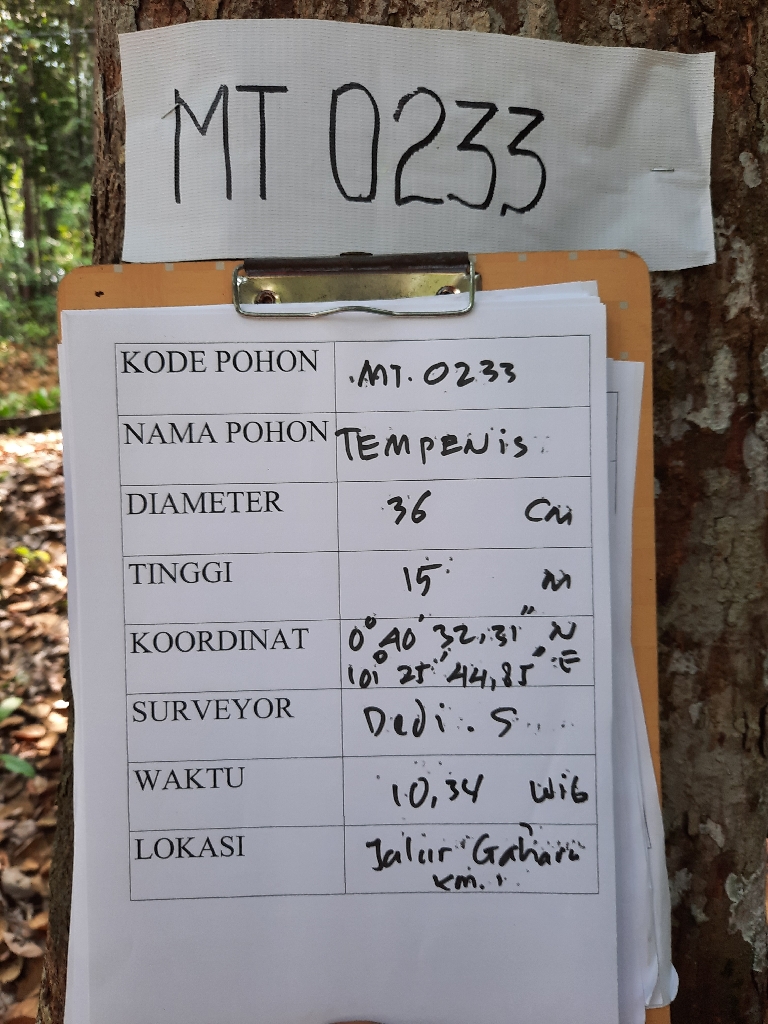 MT 0233
KODE POHON .MT. 0233
NAMA POHON TEMPENIS
DIAMETER 36 CM
TINGGI 15 M
KOORDINAT 0° 40' 32,31" N
101° 25' 44,85" E
SURVEYOR Dedi . S
WAKTU 10,34 Wib
LOKASI Jalur Gaharu
KM. 1